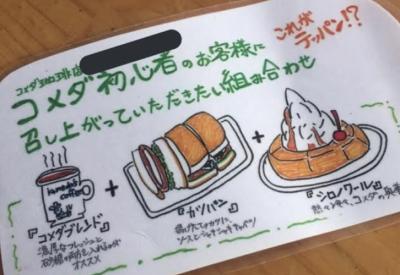 コメダ珈琲店
コメダ初心者のお客様に
これがテッパン!?
召し上がっていただきたい組み合わせ
Komeda's
coffee
+
+
『コメダブレンド』
濃厚なフレッシュと
砂糖の両方を入れるのが
オススメ
『カツパン』
揚げたてカツに、
ソースとシャキシャキキャベツ
『シロノワール』